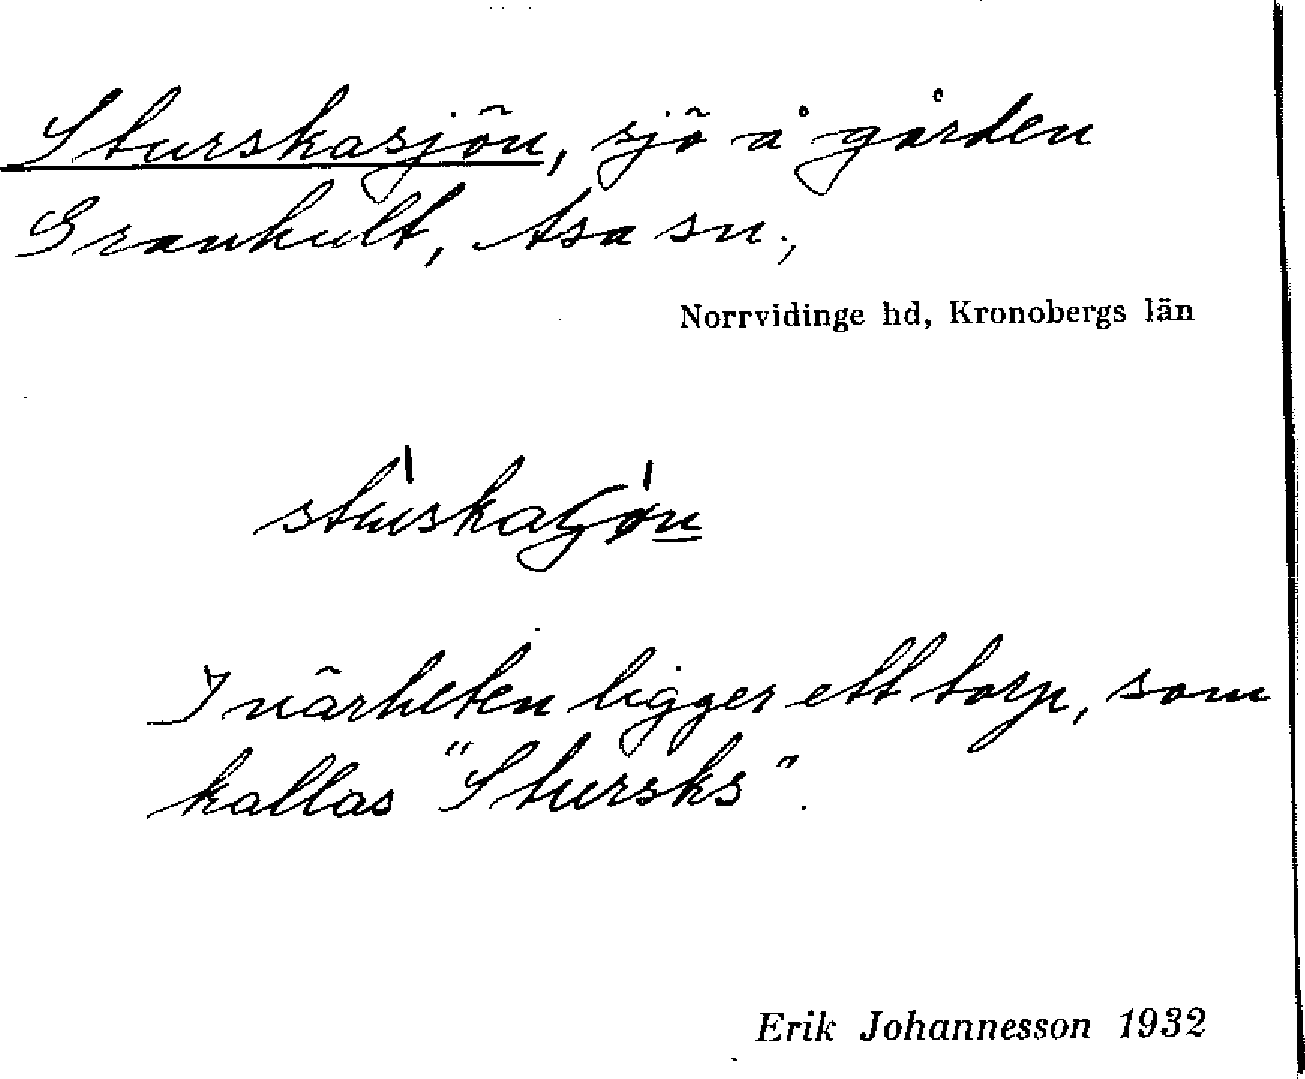 Sturskasjön, sjö å gården
Granhult, Asa sn.,
Norrvidinge hd, Kronobergs län
I närheten ligger ett torp, som
kallas "Stursks".
Erik Johannesson 1932